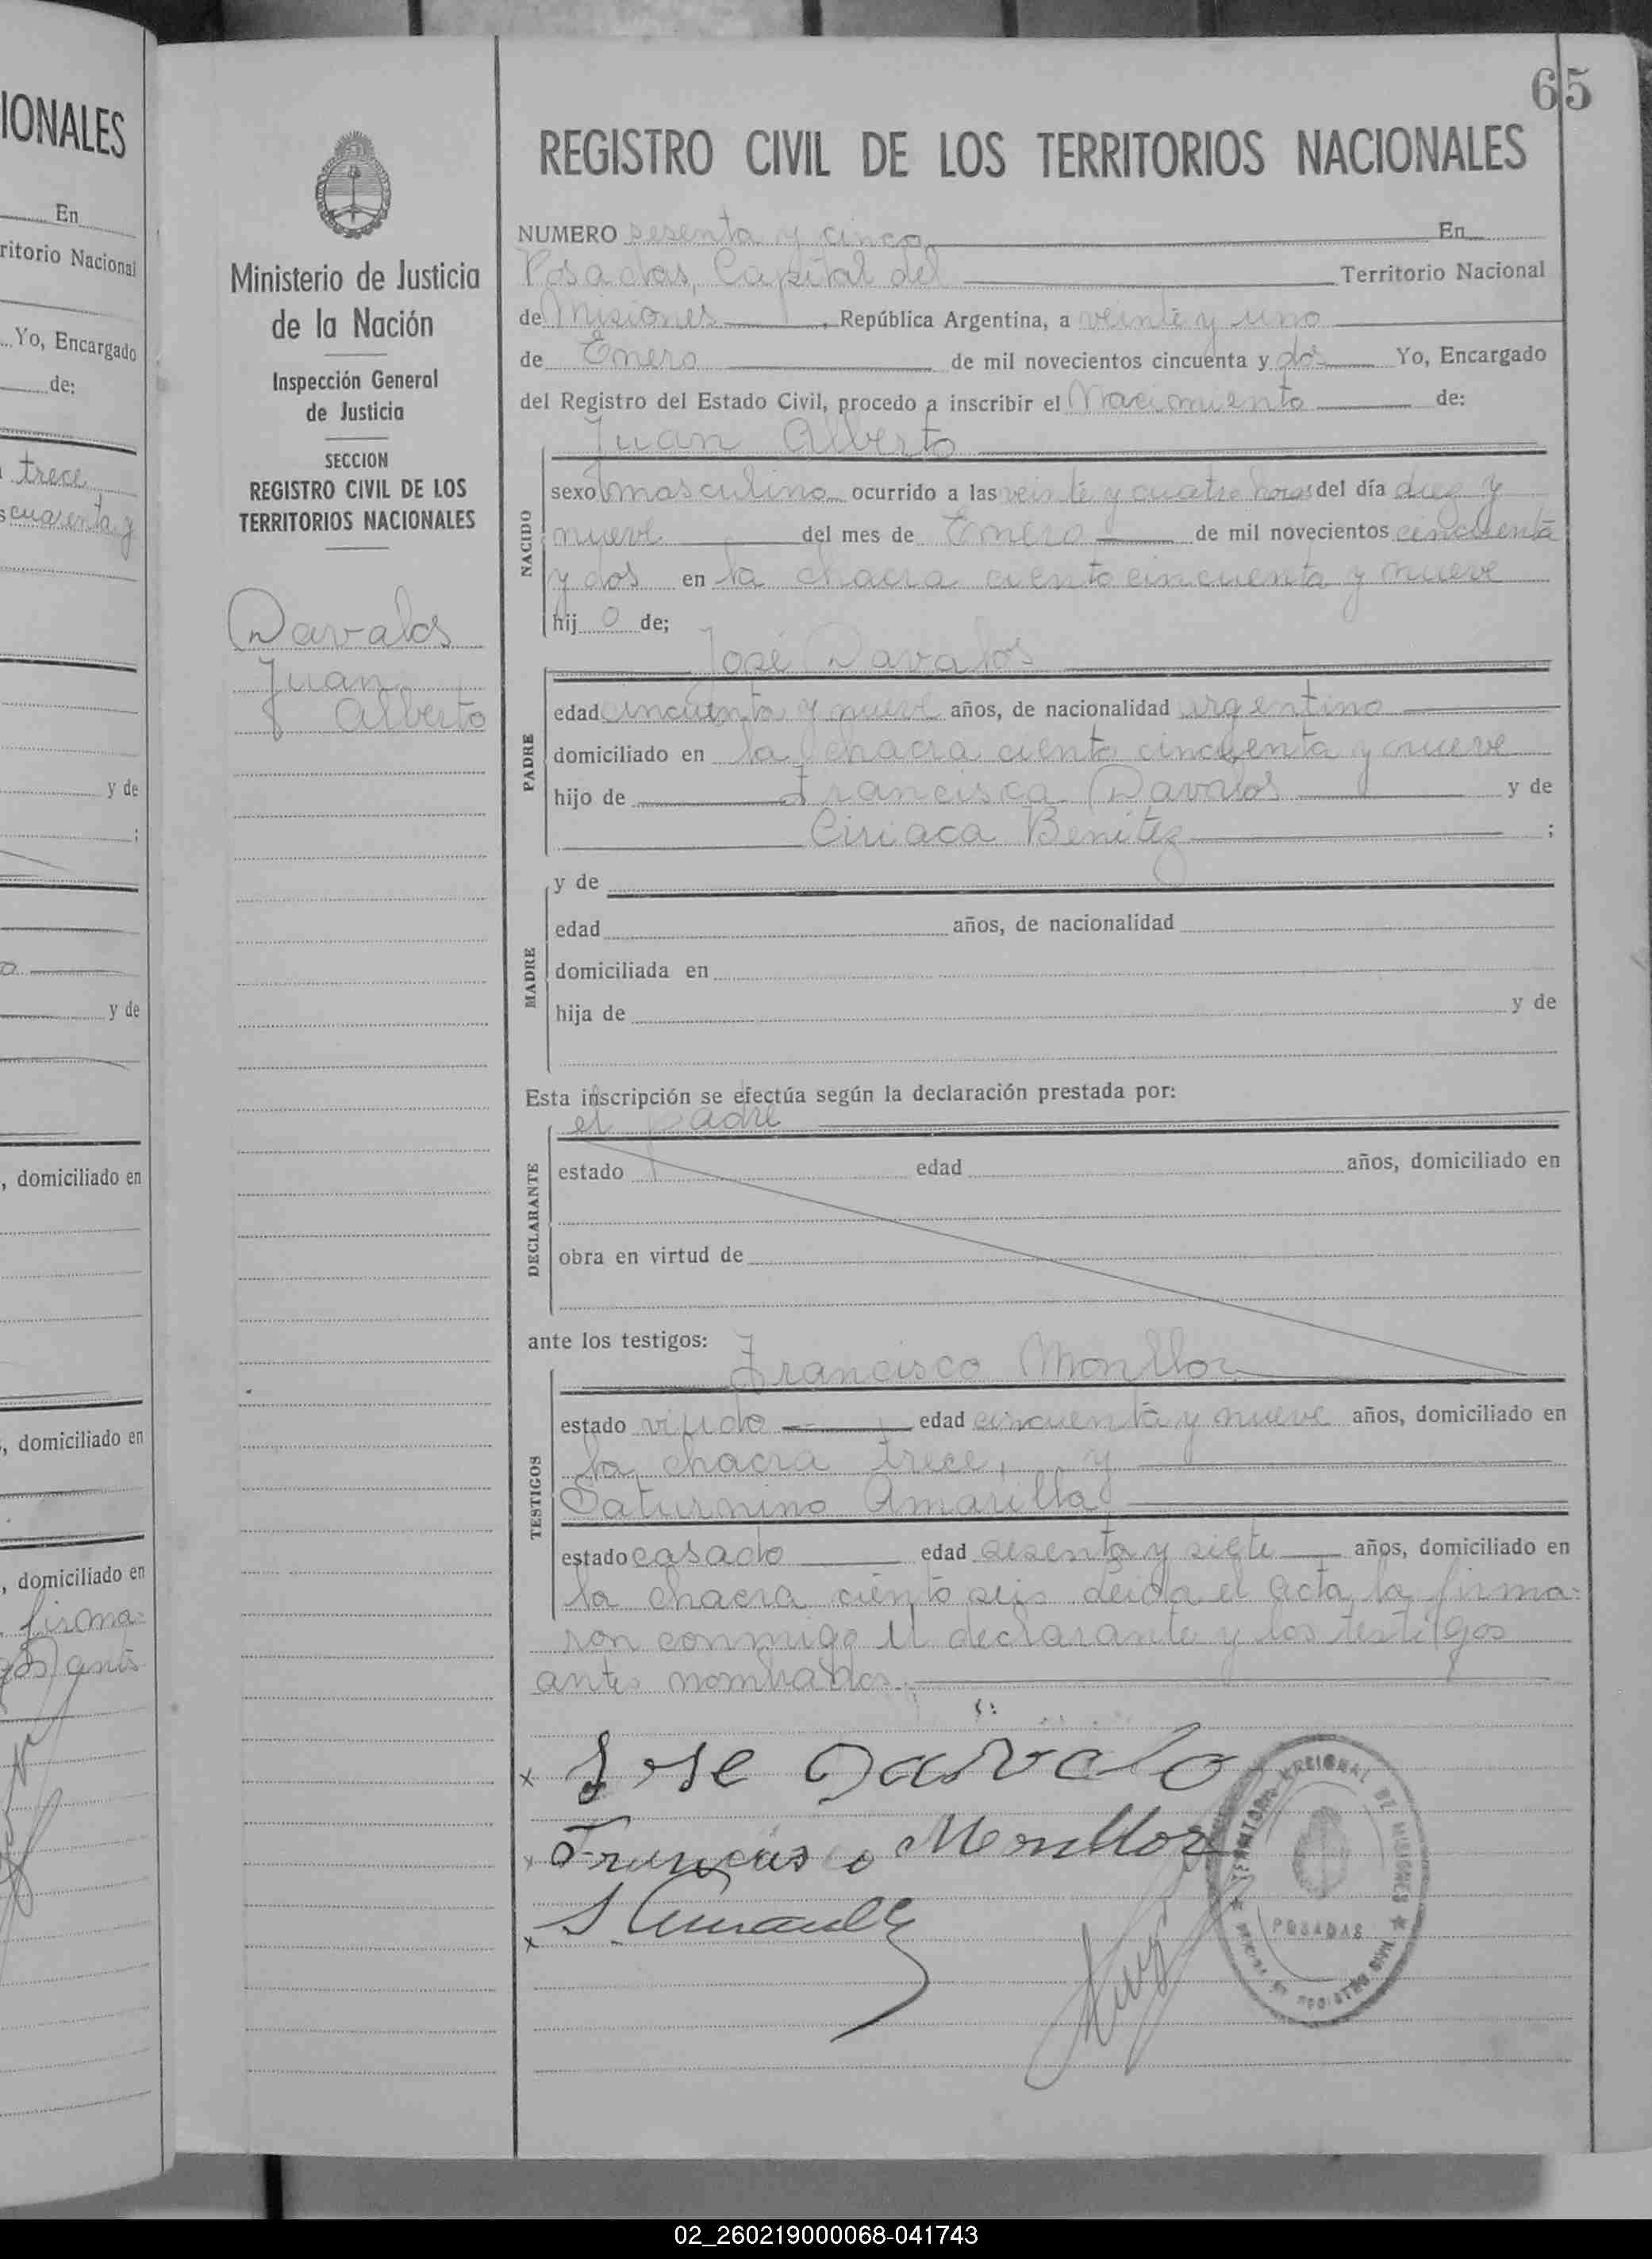 IONALES
En
ritorio Nacional
Yo, Encargado
de:
trece
cuarenta y
y de
;
y de
, domiciliado en
, domiciliado en
, domiciliado en
firma=
65
Ministerio de Justicia
de la Nación
Inspección General
de Justicia
SECCION
REGISTRO CIVIL DE LOS
TERRITORIOS NACIONALES
Davalos
Juan
Alberto
REGISTRO CIVIL DE LOS TERRITORIOS NACIONALES
NUMERO sesenta y cinco En
Posadas, Capital del Territorio Nacional
de Misiones , República Argentina, a veinte y uno
de Enero de mil novecientos cincuenta y dos Yo, Encargado
del Registro del Estado Civil, procedo a inscribir el Nacimiento de:
Juan Alberto
NACIDO
sexo masculino ocurrido a las veinte y cuatro horas del día diez y
nueve del mes de Enero de mil novecientos cincuenta
y dos en la chacra ciento cincuenta y nueve
hij o de;
José Davalos
PADRE
edad cincuenta y nueve años, de nacionalidad argentino
domiciliado en la chacra ciento cincuenta y nueve
hijo de Francisca Davalos y de
Ciriaca Benitez ;
MADRE
y de
edad años, de nacionalidad
domiciliada en
hija de y de
Esta inscripción se efectúa según la declaración prestada por:
el padre
DECLARANTE
estado edad años, domiciliado en
obra en virtud de
ante los testigos:
Francisco Monllor
TESTIGOS
estado viudo edad cincuenta y nueve años, domiciliado en
la chacra trece, y
Saturnino Amarilla
estado casado edad sesenta y siete años, domiciliado en
la chacra ciento seis. Leida el acta la firma=
ron conmigo el declarante y los testigos
antes nombrados.
x Jose Davalo
x Francisco Monllor
x S. Amarilla
TERRITORIO NACIONAL DE MISIONES
POSADAS
02_260219000068-041743